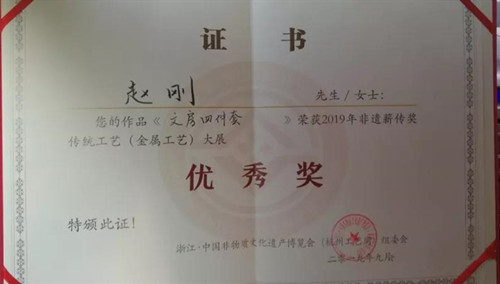 证 书
赵刚 先生/女士:
您的作品《文房四付套》荣获2019年非遗薪传奖
传统工艺（金属工艺）大展
优秀奖
特颁此证!
浙江·中国非物质文化遗产博览会（杭州工艺周）组委会
二〇一九年九月